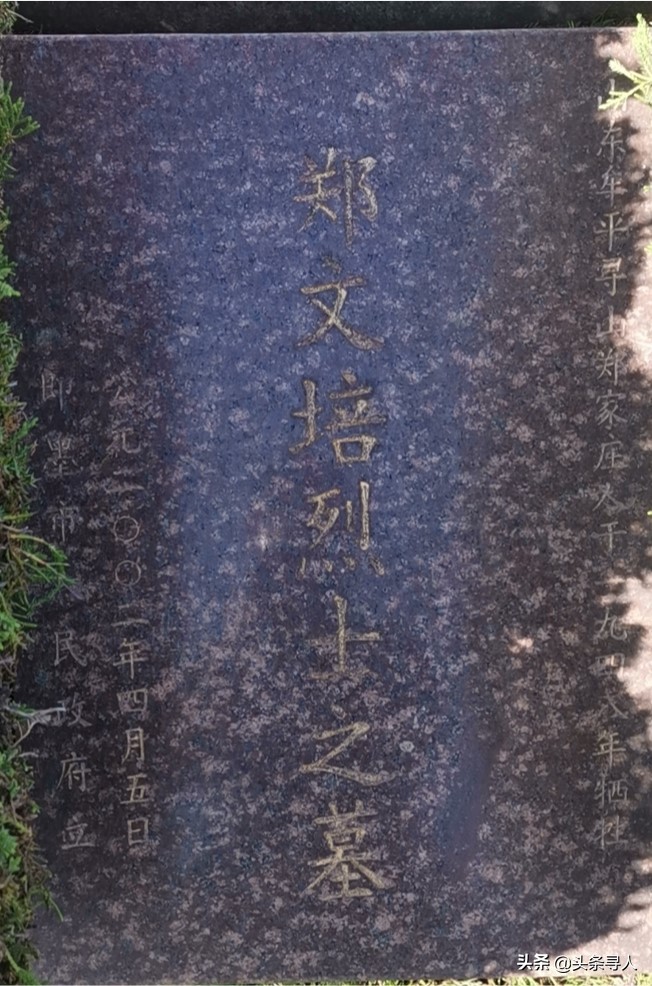 山东牟平寻山郑家庄人于一九四八年牺牲
郑文培烈士之墓
公元二〇〇二年四月五日
即墨市人民政府立
头条 @头条寻人